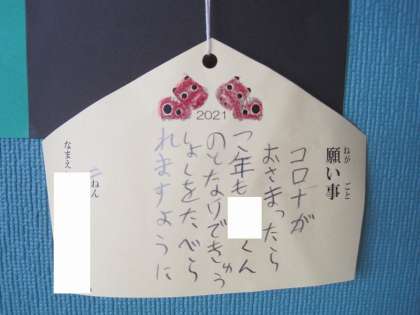 2021
ねが ごと
願い事
コロナが
おさまったら
こ年も くん
のとなりできゅう
しょくをたべら
れますように
ねん
なまえ